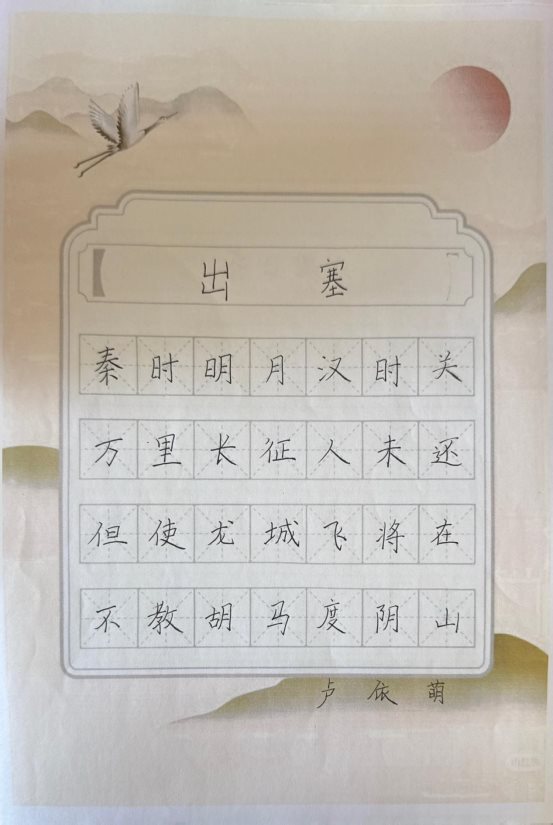 出塞
秦时明月汉时关
万里长征人未还
但使龙城飞将在
不教胡马度阴山
卢依萌